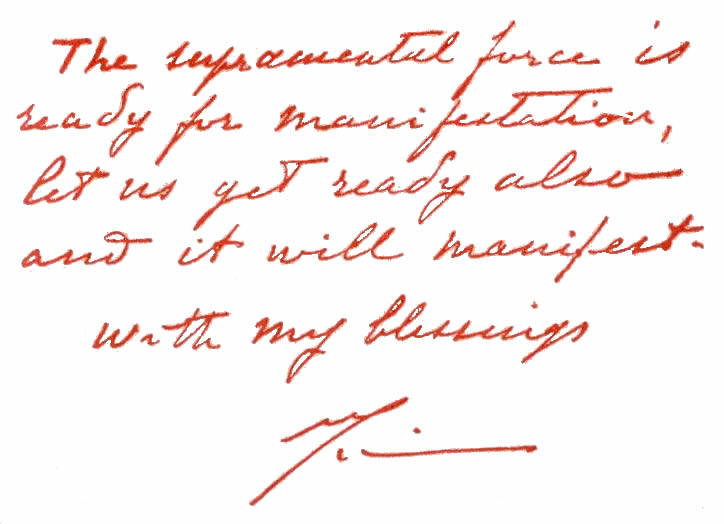 The supramental force is
ready for manifestation,
let us get ready also
and it will manifest.
with my blessings